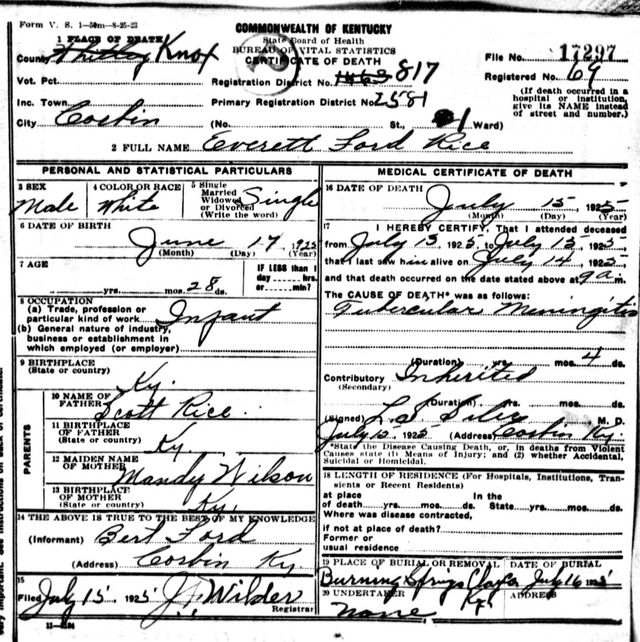 Form V. S. 1—50m—8-25-22
COMMONWEALTH OF KENTUCKY
State Board of Health
BUREAU OF VITAL STATISTICS
CERTIFICATE OF DEATH
1 PLACE OF DEATH
County Whitley Knox
Vot. Pct.
Inc. Town
City Corbin
Registration District No. 1463 817
Primary Registration District No. 2581
(No. St., 1 Ward)
File No. 17297
Registered No. 69
(If death occurred in a
hospital or institution,
give its NAME instead
of street and number.)
2 FULL NAME Everett Ford Rice
PERSONAL AND STATISTICAL PARTICULARS
3 SEX
Male
4 COLOR OR RACE
White
5 Single
Married
Widowed
or Divorced
(Write the word)
Single
6 DATE OF BIRTH
June 17, 1925
(Month) (Day) (Year)
7 AGE
yrs. mos. 28 ds.
IF LESS than 1
day hrs.
or min?
8 OCCUPATION
(a) Trade, profession or
particular kind of work Infant
(b) General nature of industry,
business or establishment in
which employed (or employer)
9 BIRTHPLACE
(State or country)
Ky.
PARENTS
10 NAME OF
FATHER
Scott Rice
11 BIRTHPLACE
OF FATHER
(State or country)
Ky
12 MAIDEN NAME
OF MOTHER
Mandy Wilson
13 BIRTHPLACE
OF MOTHER
(State or country)
Ky.
14 THE ABOVE IS TRUE TO THE BEST OF MY KNOWLEDGE
(Informant) Bert Ford
(Address) Corbin Ky
15
Filed July 15 1925 J. Wilder
Registrar
MEDICAL CERTIFICATE OF DEATH
16 DATE OF DEATH
July 15, 1925
(Month) (Day) (Year)
17 I HEREBY CERTIFY, That I attended deceased
from July 13 1925, to July 15 1925,
that I last saw him alive on July 14 1925
and that death occurred on the date stated above at 9 a m.
The CAUSE OF DEATH* was as follows:
Tubercular Meningitis
(Duration) yrs. mos. 4 ds.
Contributory Inherited
(Secondary)
(Duration) yrs. mos. ds.
(Signed) M. D.
July 15 1925 (Address) Corbin Ky
*State the Disease Causing Death, or, in deaths from Violent
Causes state (1) Means of Injury; and (2) whether Accidental,
Suicidal or Homicidal.
18 LENGTH OF RESIDENCE (For Hospitals, Institutions, Tran-
sients or Recent Residents)
at place
of death yrs. mos. ds.
In the
State yrs. mos. ds.
Where was disease contracted,
if not at place of death?
Former or
usual residence
19 PLACE OF BURIAL OR REMOVAL
Burning Springs Clay Co Ky
DATE OF BURIAL
July 16 1925
20 UNDERTAKER
none
ADDRESS